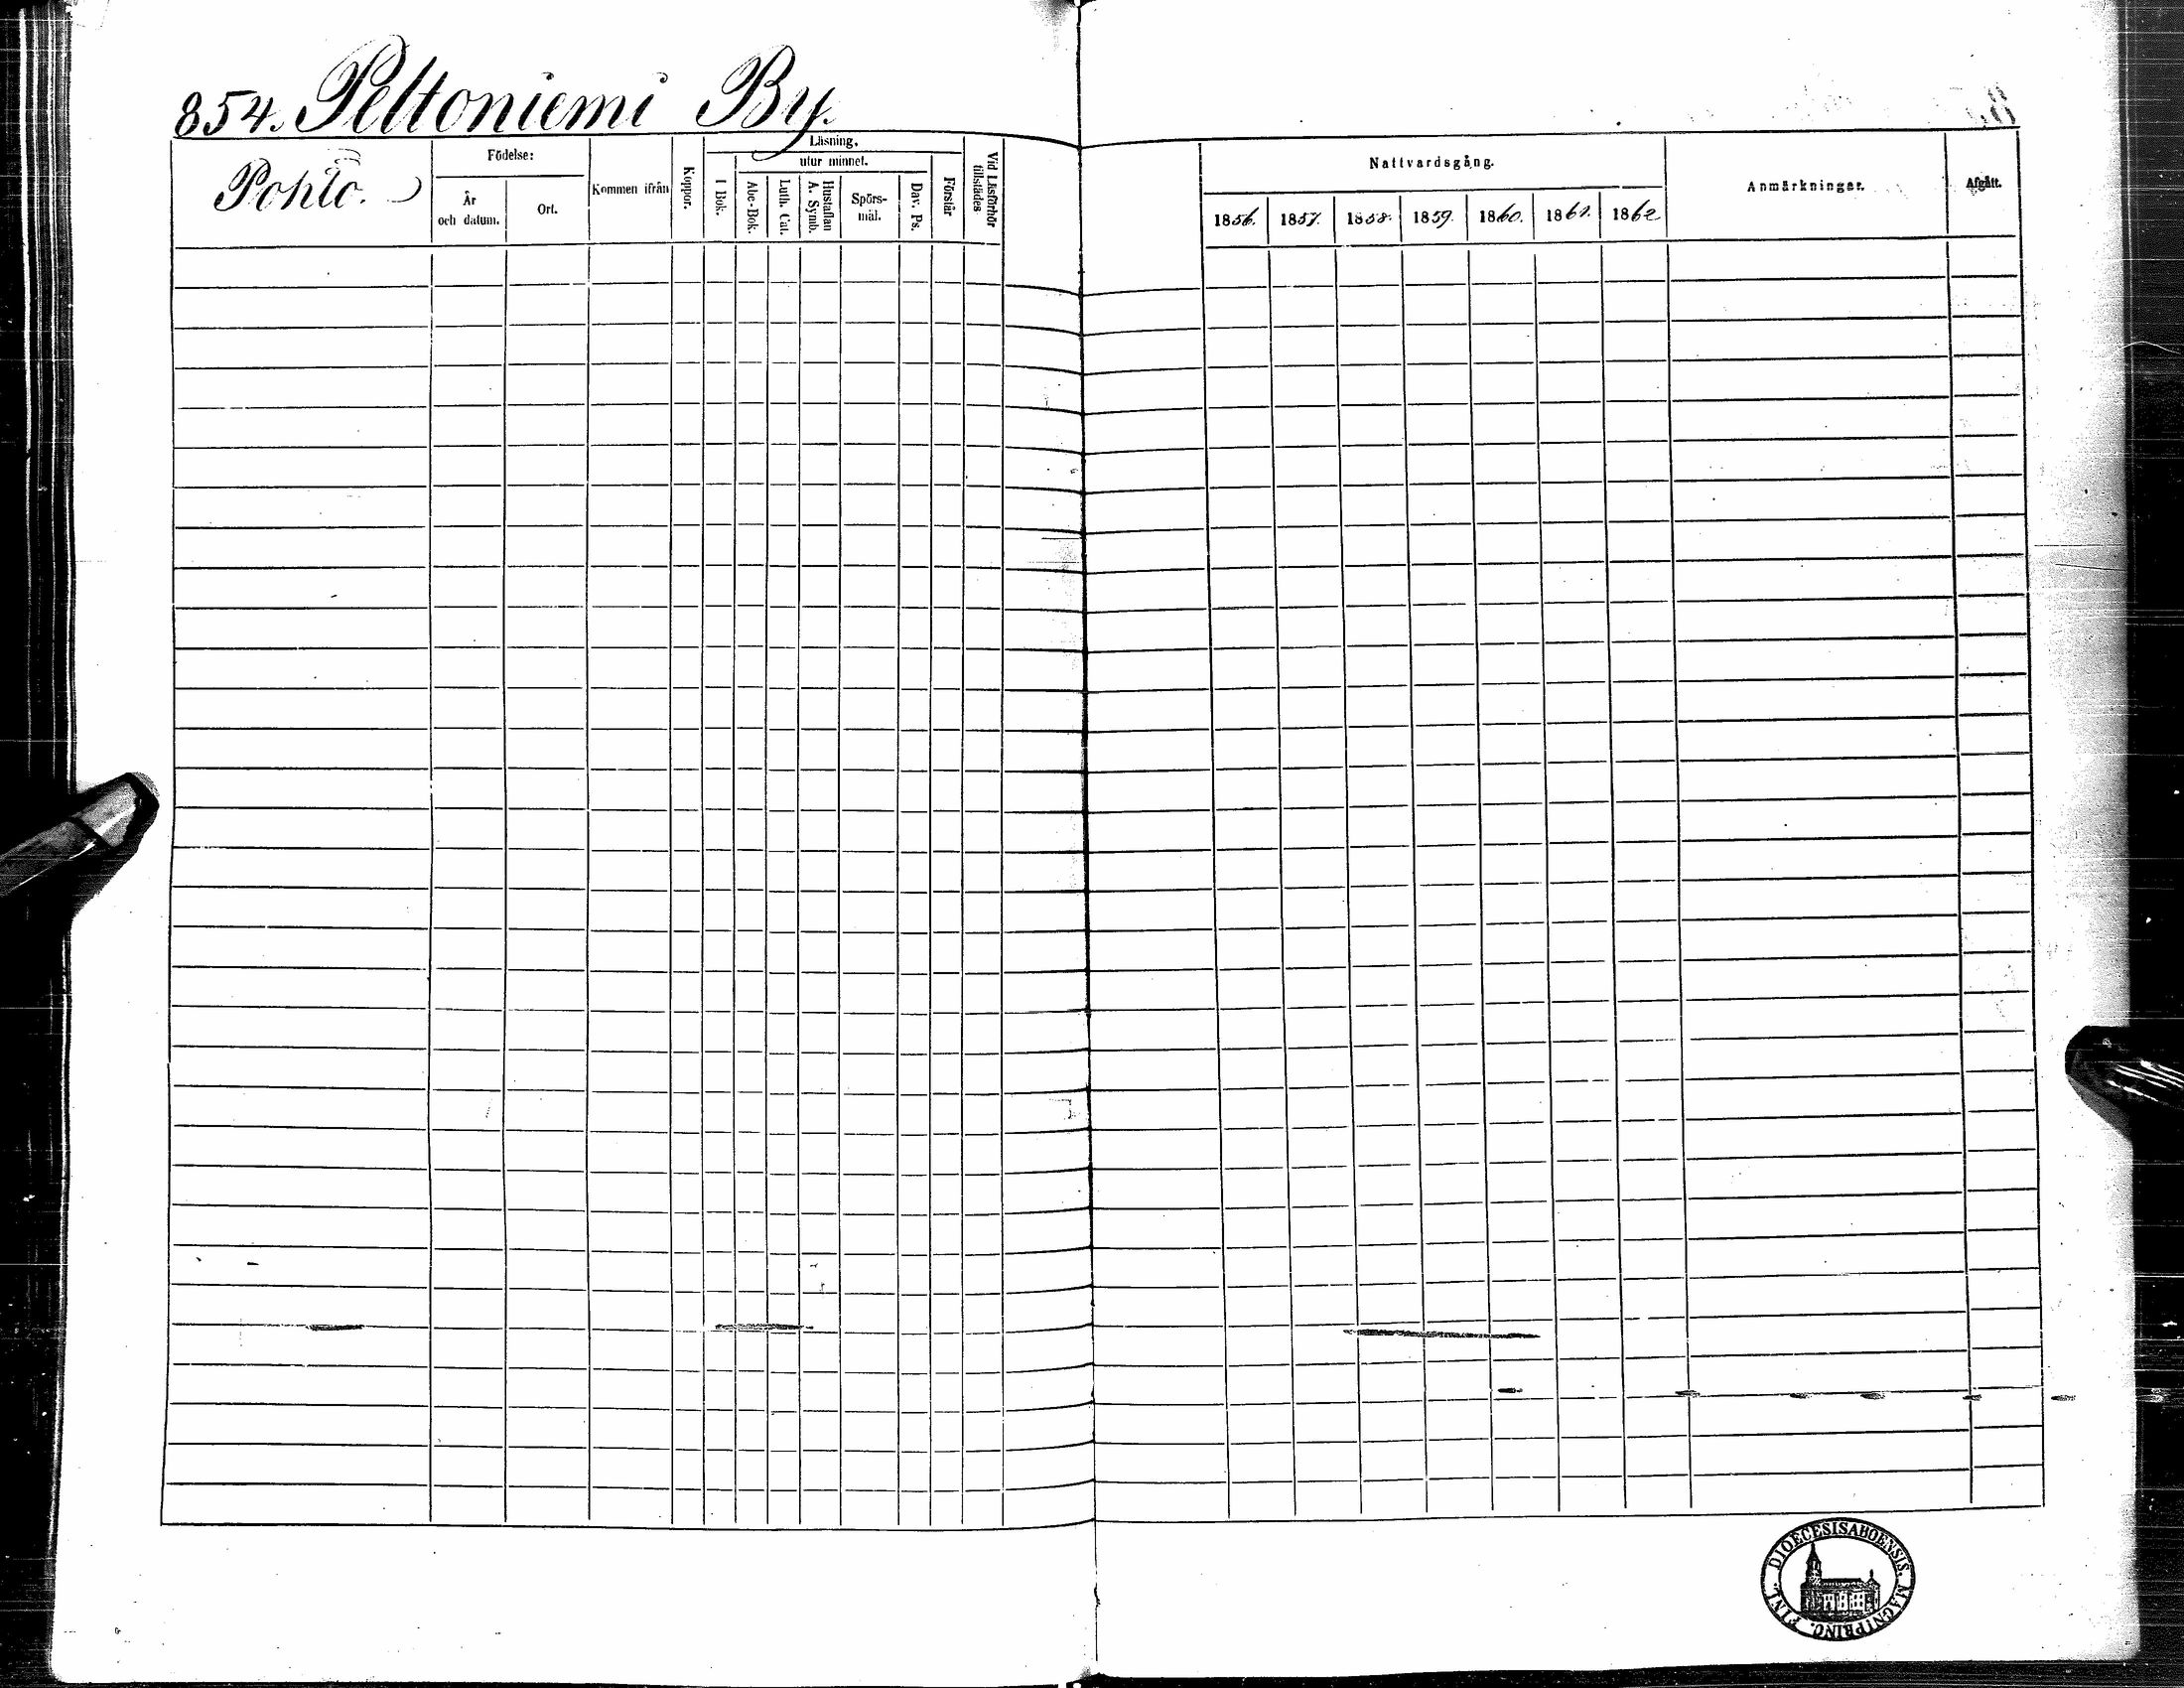 854. Peltoniemi By.
Pohto.
Födelse:
År
och datum.
Ort.
Kommen ifrån
Koppor.
Läsning,
utur minnet.
I Bok.
Abc-Bok.
Luth. Cat.
Hustaflan
A. Symb.
Spörs-
mål.
Dav. Ps.
Förstår
Vid Läsförhör
tillstädes
Nattvardsgång.
1856. 1857. 1858. 1859. 1860. 1861. 1862
Anmärkningar.
Afgått.
DIOECESIS ABOENSIS. MAGNI PRINC. FINL.